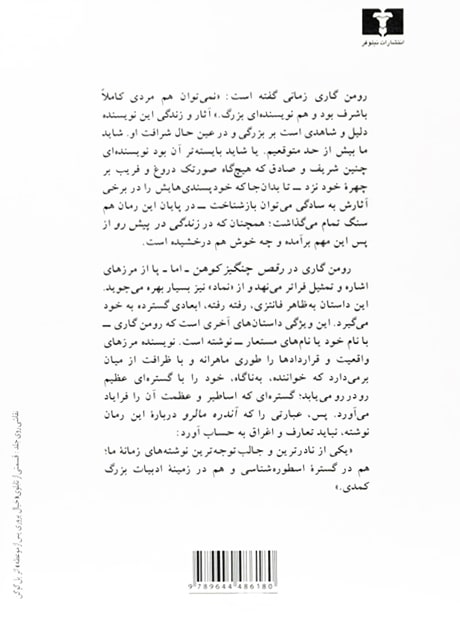 انتشارات نیلوفر
رومن گاری زمانی گفته است: «نمی‌توان هم مردی کاملاً
باشرف بود و هم نویسنده‌ای بزرگ.» آثار و زندگی این نویسنده
دلیل و شاهدی است بر بزرگی و در عین حال شرافت او. شاید
ما بیش از حد متوقعیم. یا شاید بایسته‌تر آن بود نویسنده‌ای
چنین شریف و صادق که هیچ‌گاه صورتک دروغ و فریب بر
چهرهٔ خود نزد ــ تا بدان‌جا که خودپسندی‌هایش را در برخی
آثارش به سادگی می‌توان بازشناخت ــ در پایان این رمان هم
سنگ تمام می‌گذاشت؛ همچنان که در زندگی در پیش رو از
پس این مهم برآمده و چه خوش هم درخشیده است.
رومن گاری در رقص چنگیز کوهن ــ اما ــ پا از مرزهای
اشاره و تمثیل فراتر می‌نهد و از «نماد» نیز بسیار بهره می‌جوید.
این داستان به‌ظاهر فانتزی، رفته رفته، ابعادی گسترده به خود
می‌گیرد. این ویژگی داستان‌های آخری است که رومن گاری ــ
با نام خود یا نام‌های مستعار ــ نوشته است. نویسنده مرزهای
واقعیت و قراردادها را طوری ماهرانه و با ظرافت از میان
برمی‌دارد که خواننده، به‌ناگاه، خود را با گستره‌ای عظیم
رودررو می‌یابد؛ گستره‌ای که اساطیر و عظمت آن را فرایاد
می‌آورد. پس، عبارتی را که آندره مالرو دربارهٔ این رمان
نوشته، نباید تعارف و اغراق به حساب آورد:
«یکی از نادرترین و جالب توجه‌ترین نوشته‌های زمانهٔ ما؛
هم در گسترهٔ اسطوره‌شناسی و هم در زمینهٔ ادبیات بزرگ
کمدی.»
نقاشی روی جلد: قسمتی از تابلوی
9 789644 486180